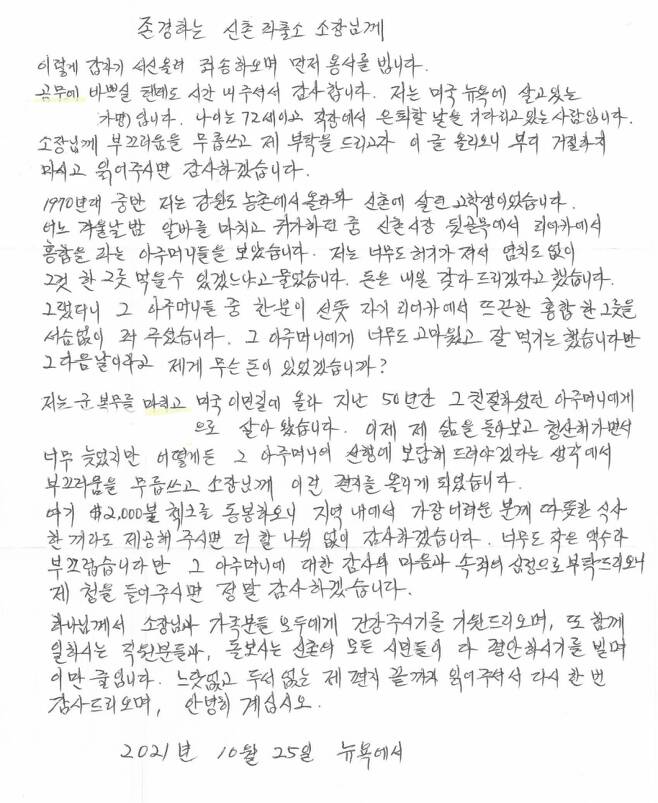 존경하는 신촌 파출소 소장님께
이렇게 갑자기 서신올려 죄송하오며 먼저 용서를 빕니다.
공무에 바쁘실 텐데도 시간 내주셔서 감사합니다. 저는 미국 뉴욕에 살고있는
가명)입니다. 나이는 72세이고 직장에서 은퇴할 날을 기다리고 있는 사람입니다.
소장님께 부끄러움을 무릅쓰고 제 부탁을 드리고자 이 글 올리오니 부디 거절하지
마시고 읽어주시면 감사하겠습니다.
1970년대 중반 저는 강원도 농촌에서 올라와 신촌에 살던 고학생이었습니다.
어느 겨울날 밤 알바를 마치고 귀가하던 중 신촌시장 뒷골목에서 리어카에서
홍합을 파는 아주머니들을 보았습니다. 저는 너무도 허기가 져서 염치도 없이
그것 한 그릇 먹을수 있겠느냐고 물었습니다. 돈은 내일 갖다 드리겠다고 했습니다.
그랬더니 그 아주머니들 중 한분이 선뜻 자기 리어카에서 뜨끈한 홍합 한 그릇을
서슴없이 퍼 주셨습니다. 그 아주머니에게 너무도 고마웠고 잘 먹기는 했습니다만
그다음날이라고 제게 무슨돈이 있었겠습니까?
저는 군 복무를 마치고 미국 이민길에 올라 지난 50년간 그 친절하셨던 아주머니에게
으로 살아 왔습니다. 이제 제 삶을 돌아보고 청산해가면서
너무 늦었지만 어떻게든 그 아주머니의 선행에 보답해 드려야겠다는 생각에서
부끄러움을 무릅쓰고 소장님께 이런 편지를 올리게 되었습니다.
여기 $2,000불 체크를 동봉하오니 지역 내에서 가장 어려운 분께 따뜻한 식사
한 끼라도 제공해 주시면 더 할 나위 없이 감사하겠습니다. 너무도 작은 액수라
부끄럽습니다만 그 아주머니에 대한 감사의 마음과 속죄의 심정으로 부탁드리오니
제 청을 들어주시면 정말 감사하겠습니다.
하나님께서 소장님과 가족분들 모두에게 건강주시기를 기원드리오며, 또 함께
일하시는 직원분들과, 돌보시는 신촌의 모든 시민들이 다 평안하시기를 빌며
이만 줄입니다. 느닷없고 두서 없는 제 편지 끝까지 읽어주셔서 다시 한 번
감사드리오며, 안녕히 계십시오.
2021년 10월 25일 뉴욕에서